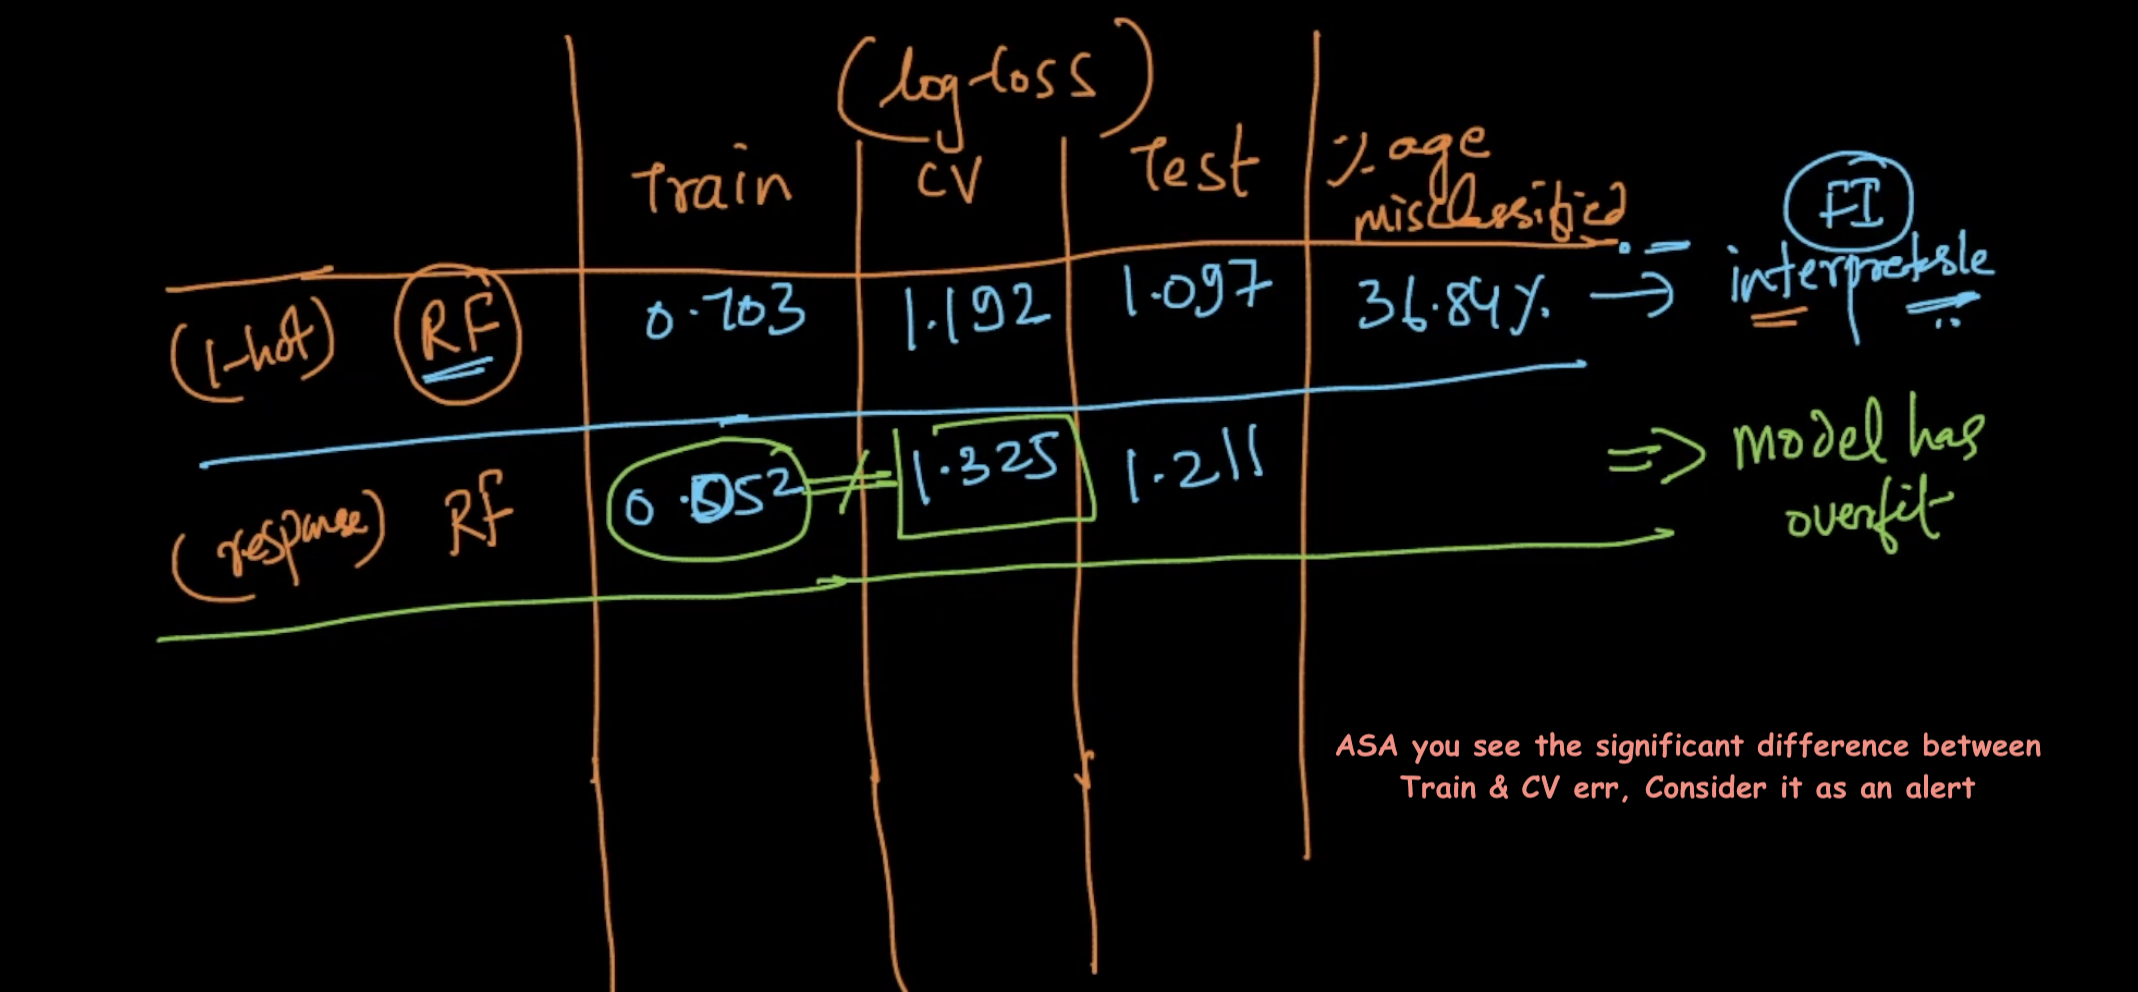 (log-loss)
Train CV Test %age
misclassified
FI
(1-hot) RF 0.703 1.192 1.097 36.84% → interpretable
(response) RF 0.052 ≠ 1.325 1.211 ⇒ Model has
overfit
ASA you see the significant difference between
Train & CV err, Consider it as an alert